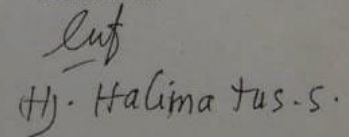 Hj. Halimatus. S.